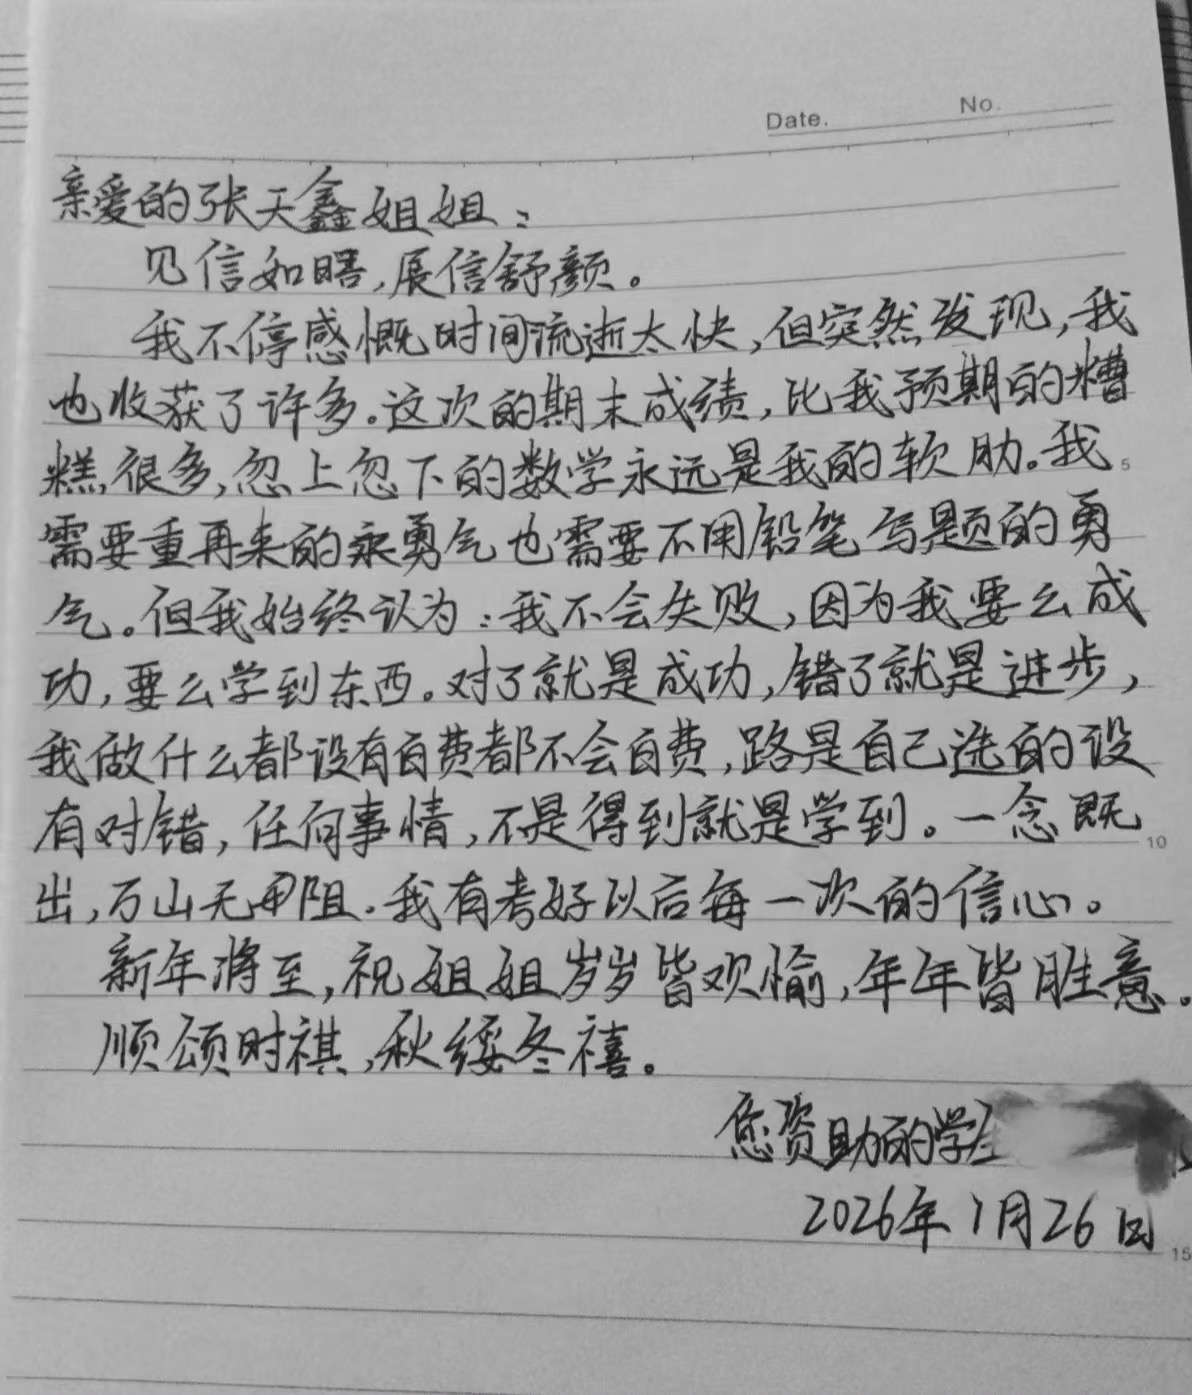 Date.
No.
亲爱的张天鑫姐姐：
见信如晤，展信舒颜。
我不停感慨时间流逝太快，但突然发现，我
也收获了许多。这次的期末成绩，比我预期的糟
糕很多，忽上忽下的数学永远是我的软肋。我
5
需要重再来的勇气也需要不用铅笔写题的勇
气。但我始终认为：我不会失败，因为我要么成
功，要么学到东西。对了就是成功，错了就是进步，
我做什么都没有白费都不会白费，路是自己选的没
有对错，任何事情，不是得到就是学到。一念既
10
出，万山无阻。我有考好以后每一次的信心。
新年将至，祝姐姐岁岁皆欢愉，年年皆胜意。
顺颂时祺，秋绥冬禧。
您资助的学生
2026年1月26日
15